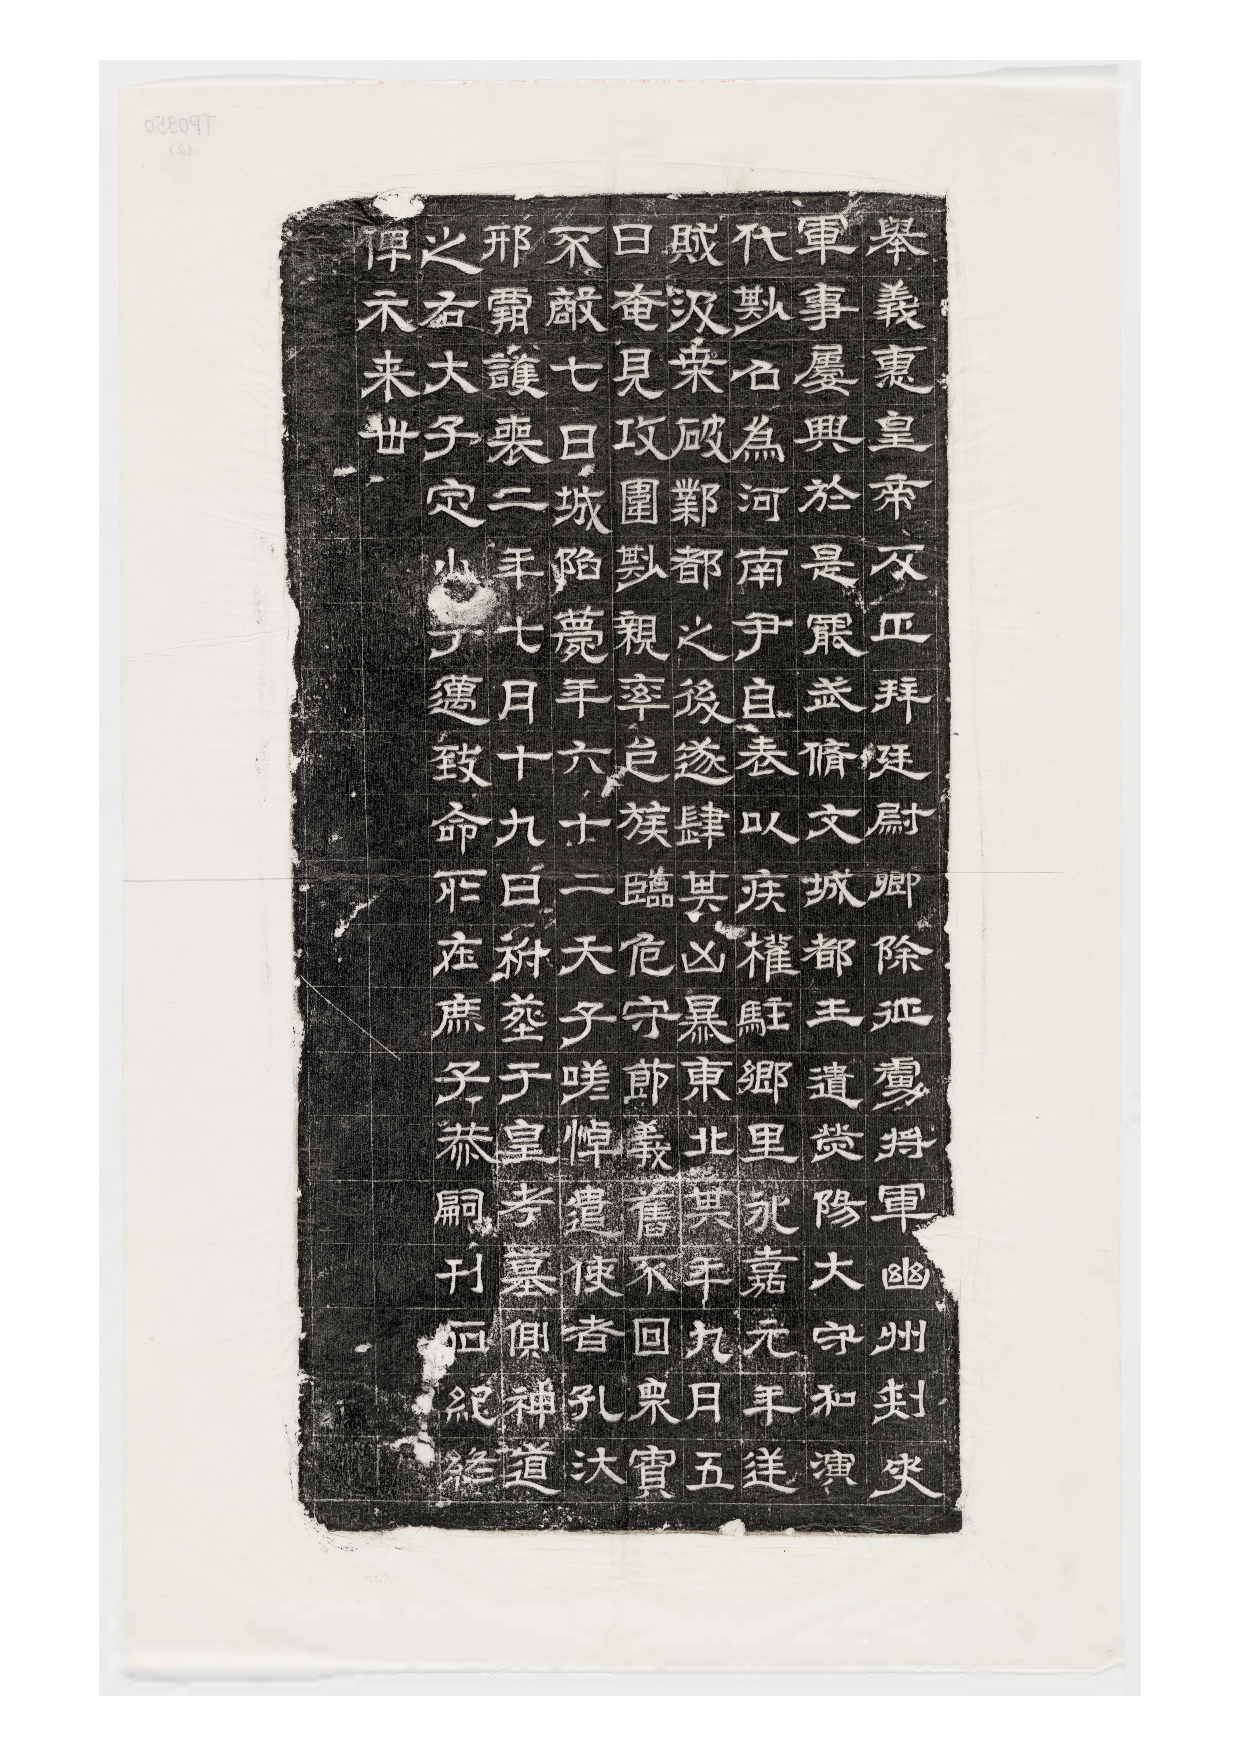 舉義惠皇帝反正拜廷尉卿除征虜将軍幽州刾史
軍事屢興於是罷武脩文城都王遣熒陽大守和演
代尠石為河南尹自表以疾權駐鄉里永嘉元年逆
賊汲桒破鄴都之後遂肆其凶暴東北其年九月五
日奄見攻圍尠親率邑族臨危守節義舊不回衆寡
不敵七日城陷薨年六十二天子嗟悼遣使者孔汏
邢霸護喪二年七月十九日祔葬于皇考墓側神道
之右大子定小子邁致命所在庶子恭嗣刊石紀終
俾示来世